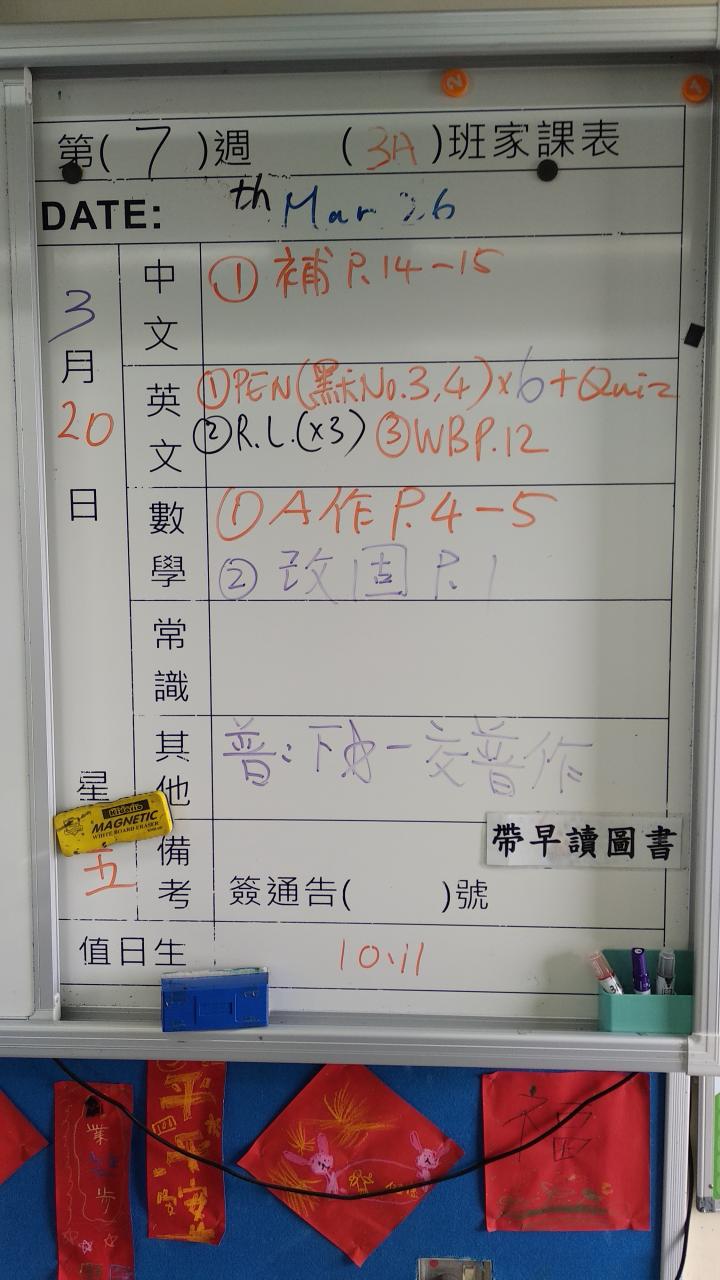 2
1
第( 7 )週 (3A)班家課表
DATE: th Mar 26
3月20日 星 五
中文 ① 補 P.14-15
英文 ①PEN(默No.3,4)×6+Quiz
②R.L.(×3) ③WBP.12
數學 ① A作 P.4-5
② 改固 P.1
常識
其他 普:下 一交普作
MAGNETIC
WHITE BOARD ERASER
帶早讀圖書
備考 簽通告( )號
值日生 10,11
業 步
平平安安
福